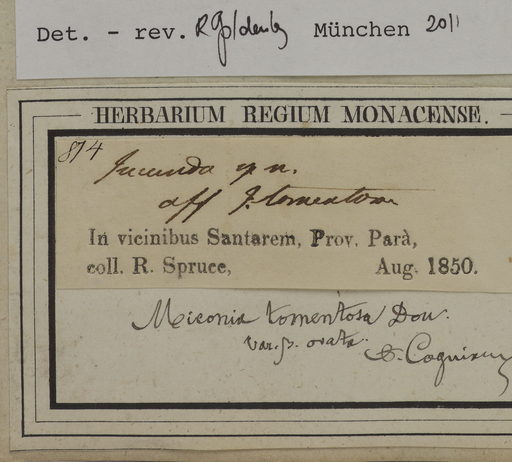 Det. - rev. R Goldenberg München 2011
HERBARIUM REGIUM MONACENSE.
874
Jucunda sp n.
aff J. tomentosa
In vicinibus Santarem, Prov. Parà,
coll. R. Spruce, Aug. 1850.
Miconia tomentosa Don.
var. β. ovata.